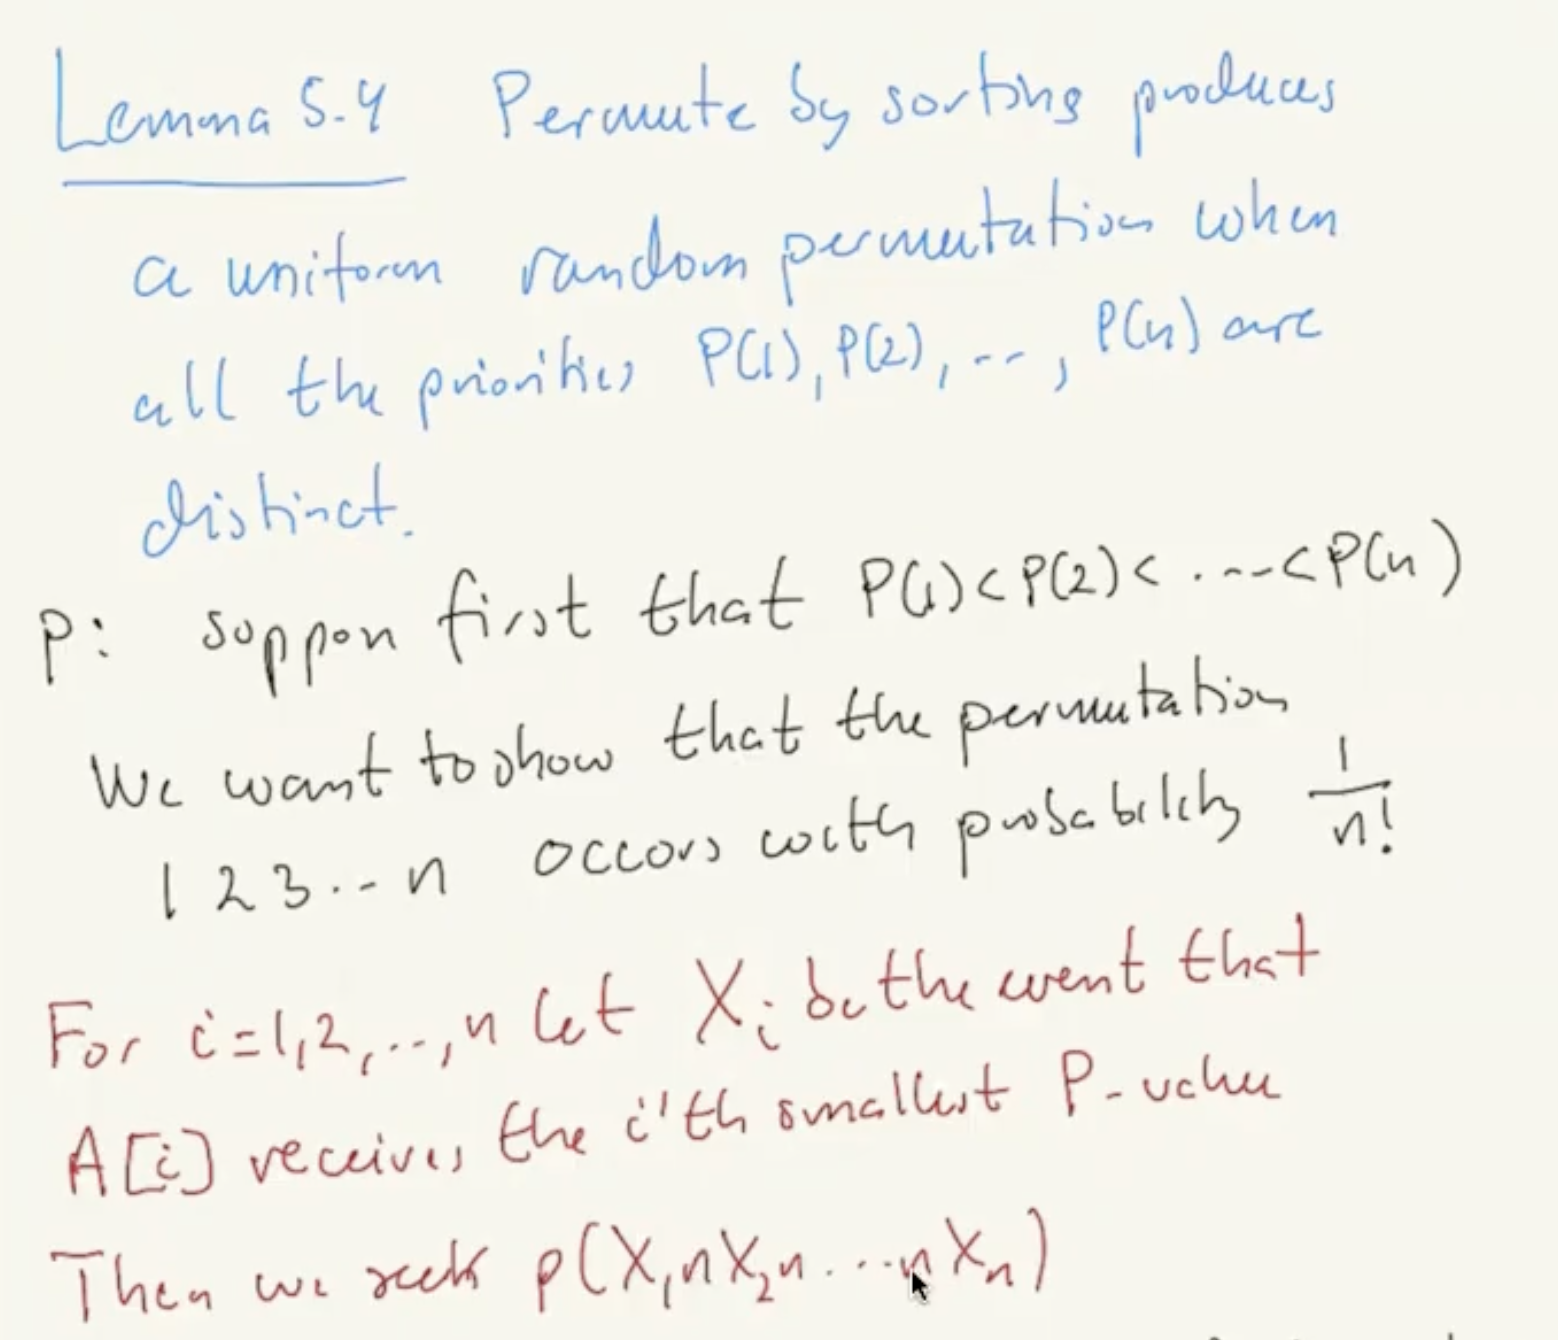 Lemma 5.4 Permute by sorting produces
a uniform random permutation when
all the priorities P(1), P(2), ..., P(n) are
distinct.
P: suppose first that P(1)<P(2)< ... <P(n)
We want to show that the permutation
1 2 3 ... n occurs with probability 1/n!
For i=1,2,...,n let Xi be the event that
A[i] receives the i'th smallest P-value
Then we seek p(X1∩X2∩...∩Xn)